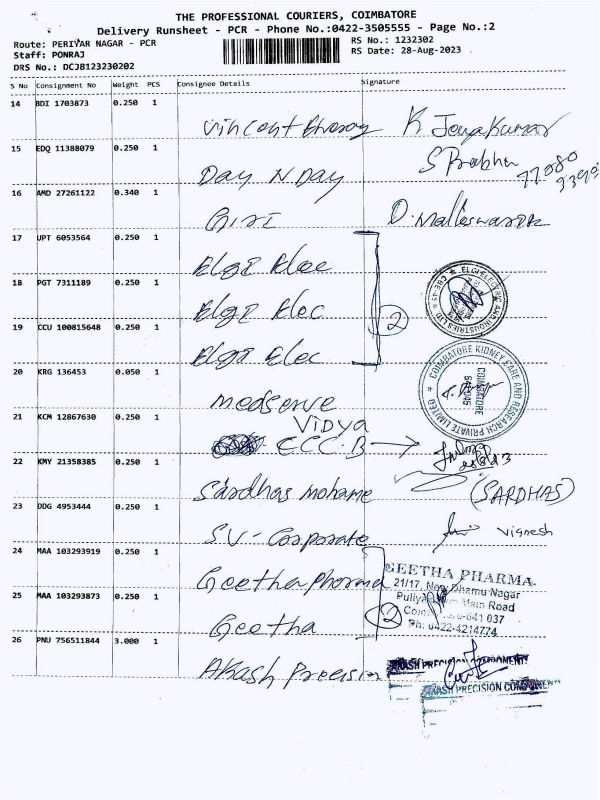 THE PROFESSIONAL COURIERS, COIMBATORE
Delivery Runsheet - PCR - Phone No.:0422-3505555 - Page No.:2
Route: PERIYAR NAGAR - PCR
Staff: PONRAJ
DRS No.: DCJB123230202
RS No.: 1232302
RS Date: 28-Aug-2023
S No Consignment No Weight PCS Consignee Details Signature
14 BDI 1703873 0.250 1
Vincent K. Jeyakumar
15 EDQ 11388079 0.250 1
Day N Day S Prabhu 77080
16 AMD 27261122 0.340 1
Giri D. Malleswaran
17 UPT 6053564 0.250 1
Elgi Elec
18 PGT 7311189 0.250 1
Elgi Elec 2
19 CCU 100815648 0.250 1
Elgi Elec
ELGI ELECTRIC AND INDUSTRIES LTD
20 KRG 136453 0.050 1
medserve
COIMBATORE KIDNEY CARE AND RESEARCH PRIVATE LIMITED
COIMBATORE
21 KCM 12867630 0.250 1
Vidya
ECC.B
22 KMY 21358385 0.250 1
Sardhas mohame (SARDHAS)
23 DDG 4953444 0.250 1
SV-Corporate Vignesh
24 MAA 103293919 0.250 1
Geetha pharma
GEETHA PHARMA
21/17, Dhamu Nagar
Main Road
641 037
Ph: 0422-4214774
25 MAA 103293873 0.250 1
Geetha 2
26 PNU 756511844 3.000 1
Akash Precision
AKASH PRECISION COMPONENT
AKASH PRECISION COMPONENT